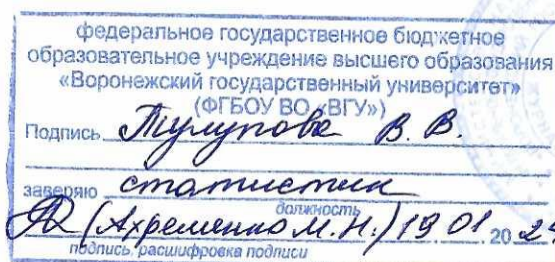 федеральное государственное бюджетное
образовательное учреждение высшего образования
«Воронежский государственный университет»
(ФГБОУ ВО «ВГУ»)
Подпись Тулупова В. В.
заверяю статистик
должность
(Ахременко М.Н.) 19 01 2024
подпись, расшифровка подписи